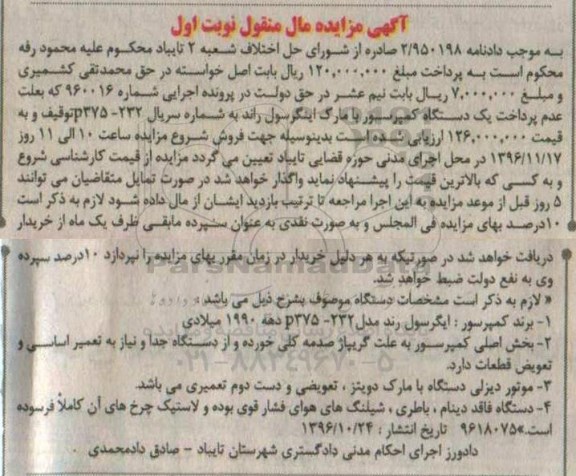 آگهی مزایده مال منقول نوبت اول
به موجب دادنامه ۲/۹۵۰۱۹۸ صادره از شورای حل اختلاف شعبه ۲ تایباد محکوم علیه محمود رفه
محکوم است به پرداخت مبلغ ۱۲۰,۰۰۰,۰۰۰ ریال بابت اصل خواسته در حق محمدتقی کشمیری
و مبلغ ۷,۰۰۰,۰۰۰ ریال بابت نیم عشر در حق دولت در پرونده اجرایی شماره ۹۶۰۰۱۶ که بعلت
عدم پرداخت یک دستگاه کمپرسور با مارک اینگرسول راند به شماره سریال ۲۳۲- p۳۷۵توقیف و به
قیمت ۱۲۶,۰۰۰,۰۰۰ ارزیابی شده است بدینوسیله جهت فروش شروع مزایده ساعت ۱۰ الی ۱۱ روز
۱۳۹۶/۱۱/۱۷ در محل اجرای مدنی حوزه قضایی تایباد تعیین می گردد مزایده از قیمت کارشناسی شروع
و به کسی که بالاترین قیمت را پیشنهاد نماید واگذار خواهد شد در صورت تمایل متقاضیان می توانند
۵ روز قبل از موعد مزایده به این اجرا مراجعه تا ترتیب بازدید ایشان از مال داده شود لازم به ذکر است
۱۰درصد بهای مزایده فی المجلس و به صورت نقدی به عنوان سپرده مابقی ظرف یک ماه از خریدار
دریافت خواهد شد در صورتیکه به هر دلیل خریدار در زمان مقرر بهای مزایده را نپردازد ۱۰درصد سپرده
وی به نفع دولت ضبط خواهد شد.
« لازم به ذکر است مشخصات دستگاه موصوف بشرح ذیل می باشد
۱- برند کمپرسور : ایگرسول رند مدل۲۳۲- p۳۷۵ دهه ۱۹۹۰ میلادی
۲- بخش اصلی کمپرسور به علت گریپاژ صدمه کلی خورده و از دستگاه جدا و نیاز به تعمیر اساسی و
تعویض قطعات دارد.
۳- موتور دیزلی دستگاه با مارک دویتز ، تعویضی و دست دوم تعمیری می باشد.
۴- دستگاه فاقد دینام ، باطری ، شیلنگ های هوای فشار قوی بوده و لاستیک چرخ های آن کاملاً فرسوده
است.»۹۶۱۸۰۷۵ تاریخ انتشار : ۱۳۹۶/۱۰/۲۴
دادورز اجرای احکام مدنی دادگستری شهرستان تایباد - صادق دادمحمدی
ParsNamadData
۰۲۱-۸۸۳۴۹۶۷۰-۵